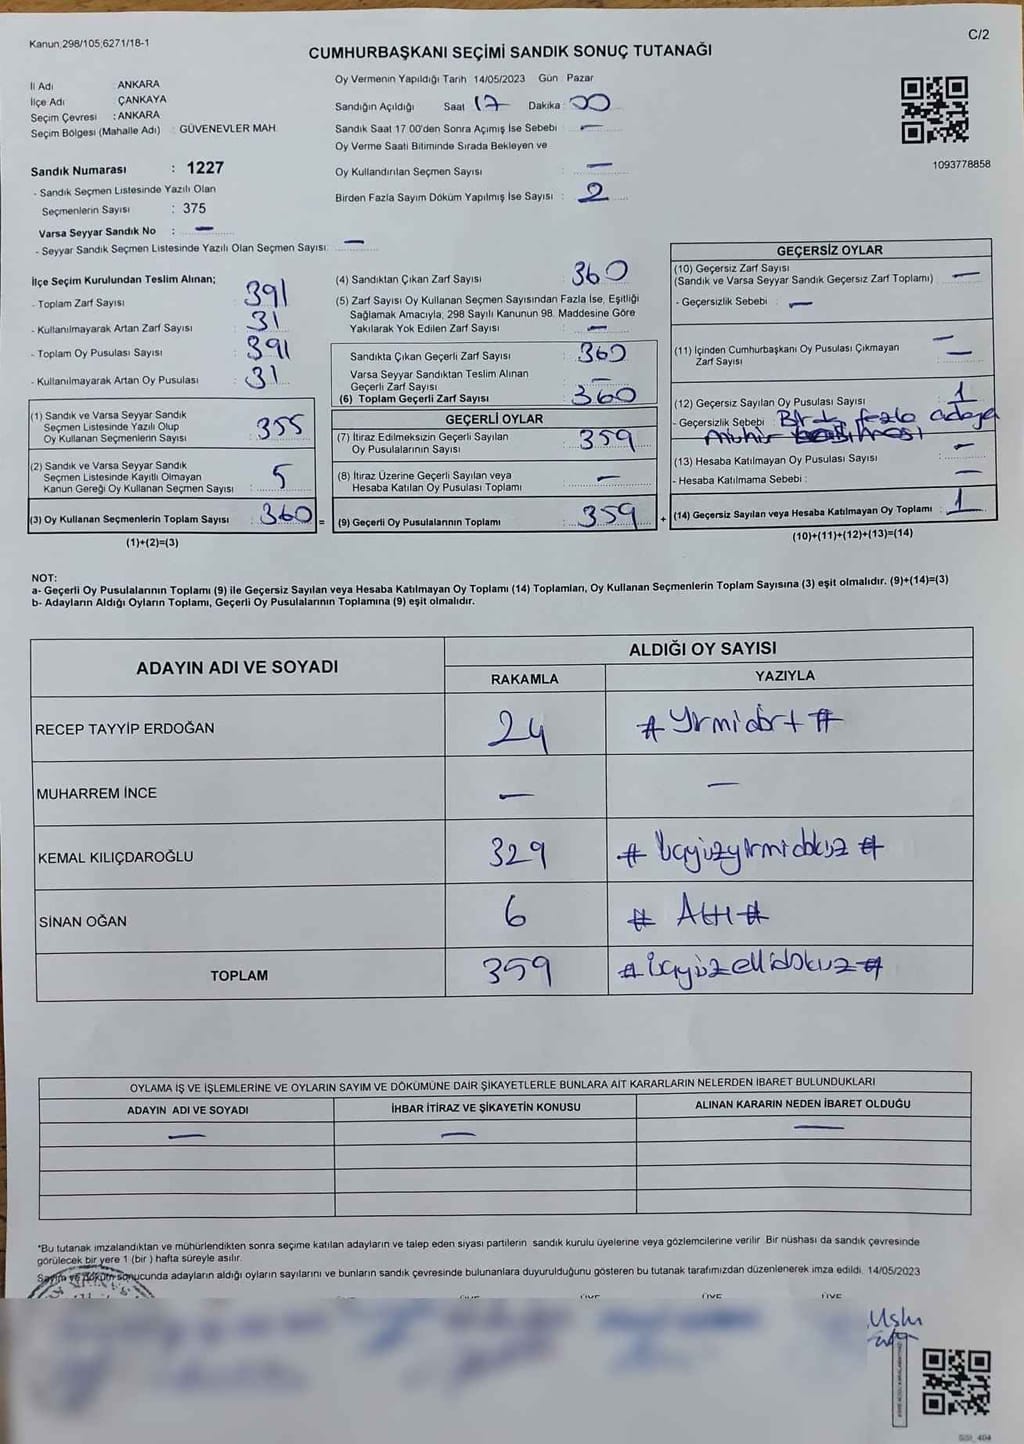 Kanun,298/105,6271/18-1
C/2
CUMHURBAŞKANI SEÇİMİ SANDIK SONUÇ TUTANAĞI
İl Adı : ANKARA
İlçe Adı : ÇANKAYA
Seçim Çevresi : ANKARA
Seçim Bölgesi (Mahalle Adı) : GÜVENEVLER MAH.
Sandık Numarası : 1227
- Sandık Seçmen Listesinde Yazılı Olan
Seçmenlerin Sayısı : 375
Varsa Seyyar Sandık No : —
- Seyyar Sandık Seçmen Listesinde Yazılı Olan Seçmen Sayısı: —
Oy Vermenin Yapıldığı Tarih 14/05/2023 Gün : Pazar
Sandığın Açıldığı Saat 17 Dakika : 00
Sandık Saat 17.00'den Sonra Açımış İse Sebebi : —
Oy Verme Saati Bitiminde Sırada Bekleyen ve
Oy Kullandırılan Seçmen Sayısı : —
Birden Fazla Sayım Döküm Yapılmış İse Sayısı : 2
1093778858
İlçe Seçim Kurulundan Teslim Alınan;
- Toplam Zarf Sayısı : 391
- Kullanılmayarak Artan Zarf Sayısı : 31
- Toplam Oy Pusulası Sayısı : 391
- Kullanılmayarak Artan Oy Pusulası : 31
(1) Sandık ve Varsa Seyyar Sandık
Seçmen Listesinde Yazılı Olup
Oy Kullanan Seçmenlerin Sayısı : 355
(2) Sandık ve Varsa Seyyar Sandık
Seçmen Listesinde Kayıtlı Olmayan
Kanun Gereği Oy Kullanan Seçmen Sayısı : 5
(3) Oy Kullanan Seçmenlerin Toplam Sayısı : 360 =
(1)+(2)=(3)
(4) Sandıktan Çıkan Zarf Sayısı : 360
(5) Zarf Sayısı Oy Kullanan Seçmen Sayısından Fazla İse, Eşitliği
Sağlamak Amacıyla, 298 Sayılı Kanunun 98. Maddesine Göre
Yakılarak Yok Edilen Zarf Sayısı : —
Sandıkta Çıkan Geçerli Zarf Sayısı : 360
Varsa Seyyar Sandıktan Teslim Alınan
Geçerli Zarf Sayısı : —
(6) Toplam Geçerli Zarf Sayısı : 360
GEÇERLİ OYLAR
(7) İtiraz Edilmeksizin Geçerli Sayılan
Oy Pusulalarının Sayısı : 359
(8) İtiraz Üzerine Geçerli Sayılan veya
Hesaba Katılan Oy Pusulası Toplamı : —
(9) Geçerli Oy Pusulalarının Toplamı : 359 +
GEÇERSİZ OYLAR
(10) Geçersiz Zarf Sayısı
(Sandık ve Varsa Seyyar Sandık Geçersiz Zarf Toplamı) : —
- Geçersizlik Sebebi : —
(11) İçinden Cumhurbaşkanı Oy Pusulası Çıkmayan
Zarf Sayısı : —
(12) Geçersiz Sayılan Oy Pusulası Sayısı : 1
- Geçersizlik Sebebi : Birden fazla adaya
mühür basılması
(13) Hesaba Katılmayan Oy Pusulası Sayısı : —
- Hesaba Katılmama Sebebi : —
(14) Geçersiz Sayılan veya Hesaba Katılmayan Oy Toplamı : 1
(10)+(11)+(12)+(13)=(14)
NOT:
a- Geçerli Oy Pusulalarının Toplamı (9) ile Geçersiz Sayılan veya Hesaba Katılmayan Oy Toplamı (14) Toplamları, Oy Kullanan Seçmenlerin Toplam Sayısına (3) eşit olmalıdır. (9)+(14)=(3)
b- Adayların Aldığı Oyların Toplamı, Geçerli Oy Pusulalarının Toplamına (9) eşit olmalıdır.
ADAYIN ADI VE SOYADI
ALDIĞI OY SAYISI
RAKAMLA YAZIYLA
RECEP TAYYİP ERDOĞAN 24 # Yirmidört #
MUHARREM İNCE — —
KEMAL KILIÇDAROĞLU 329 # Üçyüzyirmidokuz #
SİNAN OĞAN 6 # Altı #
TOPLAM 359 # Üçyüzellidokuz #
OYLAMA İŞ VE İŞLEMLERİNE VE OYLARIN SAYIM VE DÖKÜMÜNE DAİR ŞİKAYETLERLE BUNLARA AİT KARARLARIN NELERDEN İBARET BULUNDUKLARI
ADAYIN ADI VE SOYADI İHBAR İTİRAZ VE ŞİKAYETİN KONUSU ALINAN KARARIN NEDEN İBARET OLDUĞU
— — —
*Bu tutanak imzalandıktan ve mühürlendikten sonra seçime katılan adayların ve talep eden siyasi partilerin sandık kurulu üyelerine veya gözlemcilerine verilir. Bir nüshası da sandık çevresinde
görülecek bir yere 1 (bir ) hafta süreyle asılır.
Sayım ve döküm sonucunda adayların aldığı oyların sayılarını ve bunların sandık çevresinde bulunanlara duyurulduğunu gösteren bu tutanak tarafımızdan düzenlenerek imza edildi. 14/05/2023
ÜYE ÜYE ÜYE ÜYE